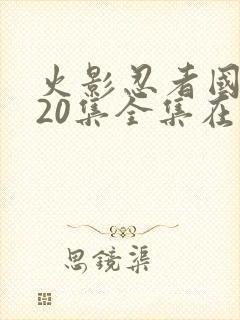 火影忍者国
20集全集在
思镜渠